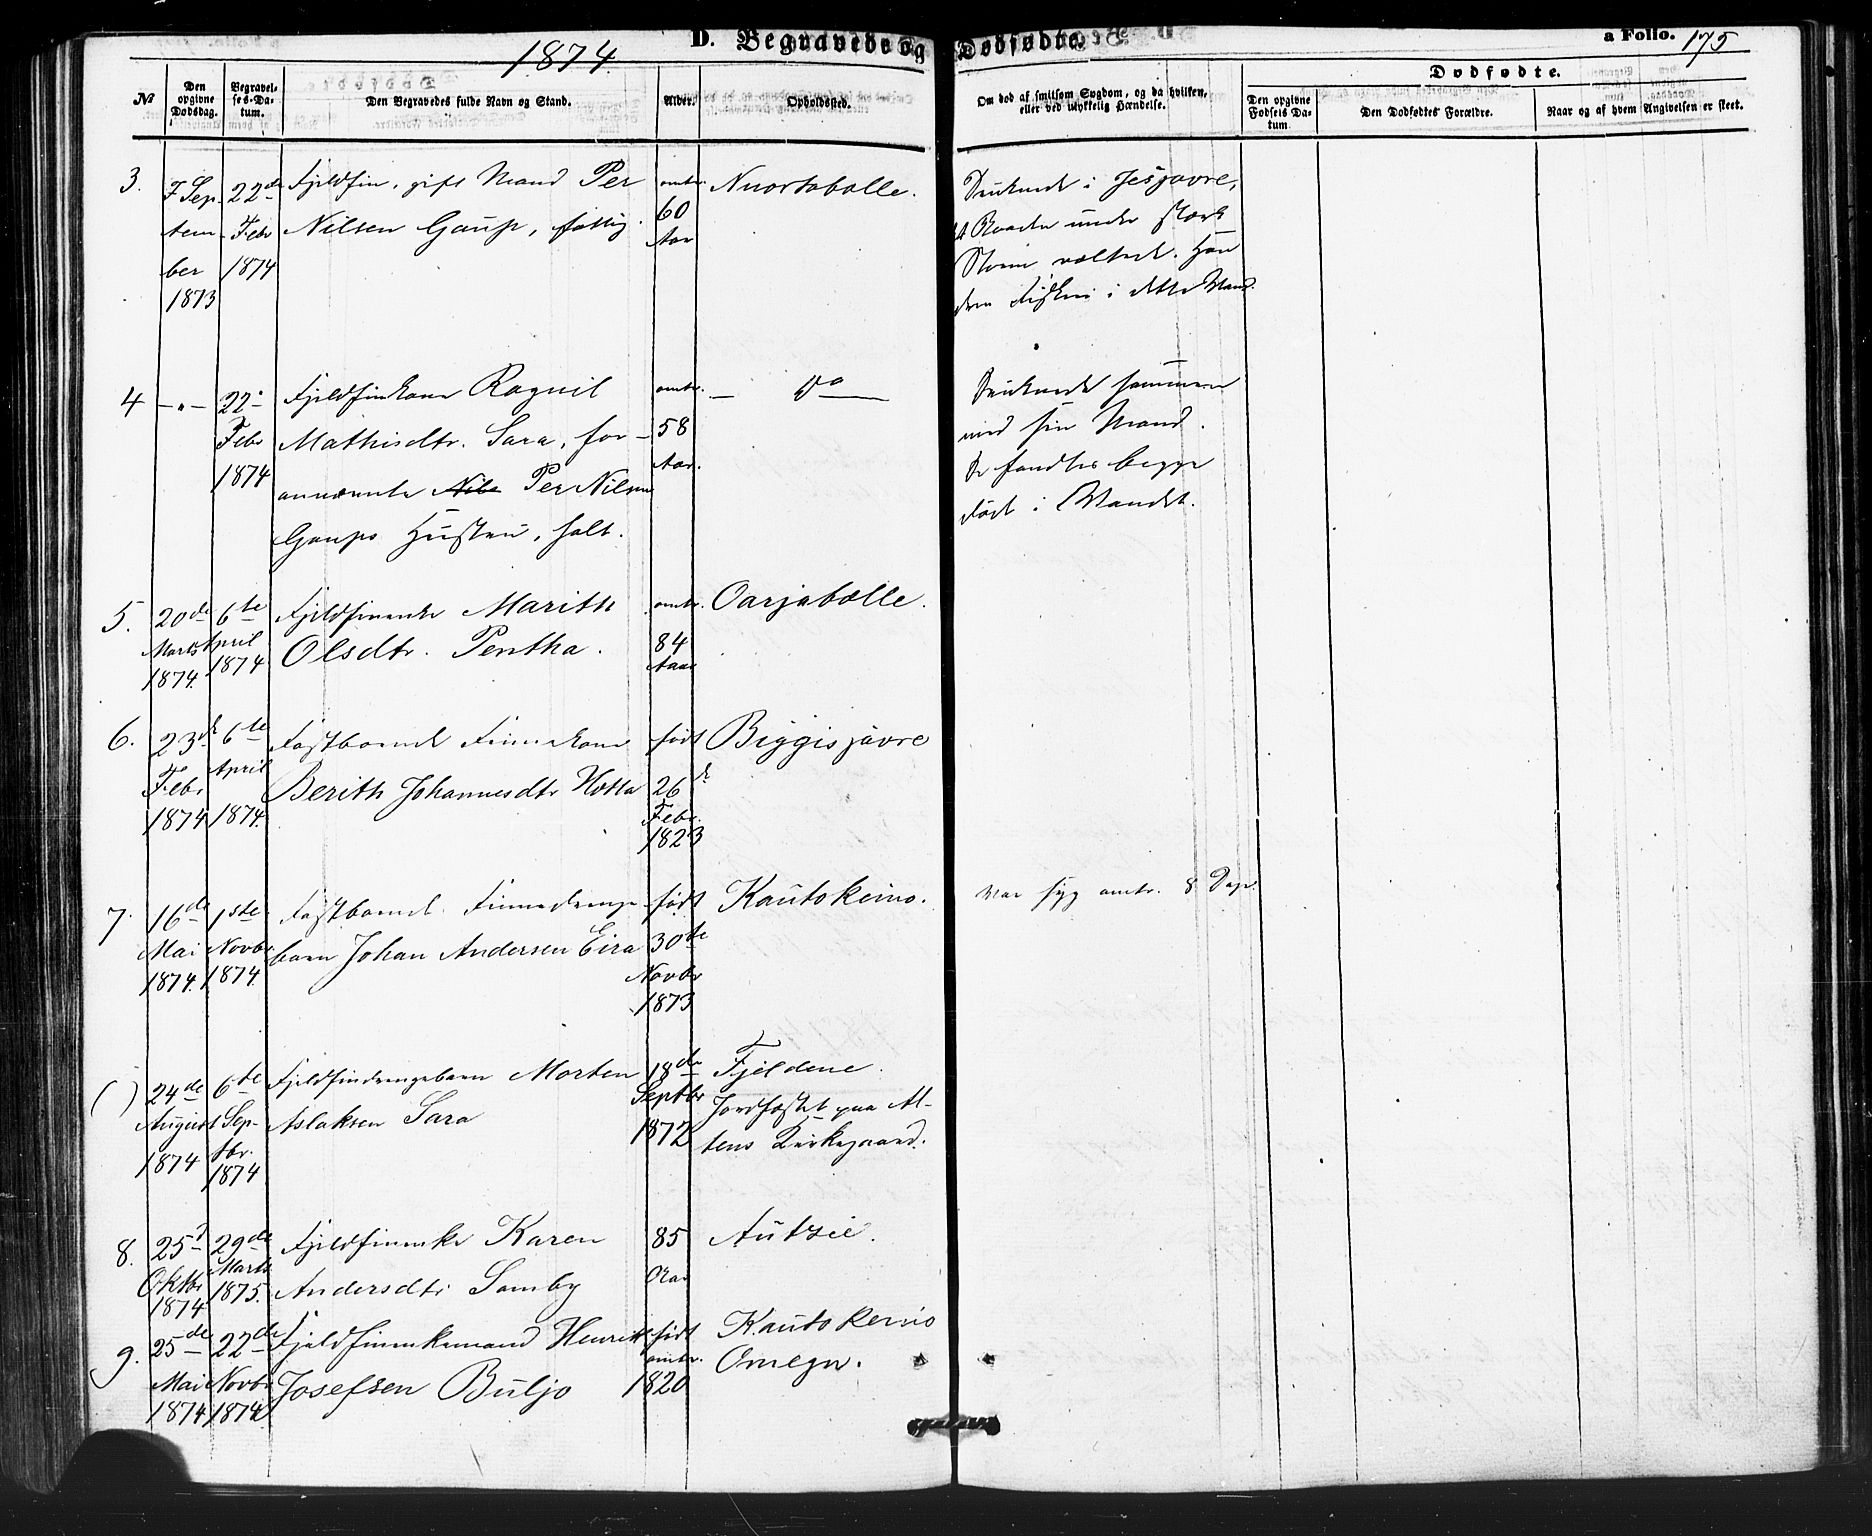 1874.
D. Begravede og Dødfødte.
a Folio. 175
№
Den opgivne Dødsdag.
Begravelses-Datum.
Den Begravedes fulde Navn og Stand.
Alder.
Opholdssted.
Om død af smitsom Sygdom, og da hvilken, eller ved ulykkelig Hændelse.
Dødfødte.
Den opgivne Fødsels Datum.
Den Dødfødtes Forældre.
Naar og af hvem Angivelsen er skeet.
3.
7 Sep-
tem-
ber
1873
22de
Febr
1874
Fjeldfin, gift Mand Per
Nilsen Gaup, fattig.
omtr.
60
Aar
Nuortaballe.
Druknede i Jesjavre,
at Baaden under stærk
Storm væltede. Han
drev Fiskeri i dette Vand.
4
- " -
22-
Febr
1874
Fjeldfinkone Ragnil
Mathisdtr. Sara, for-
annævnte Nils Per Nilsen
Gaups Hustru, halt.
omtr.
58
Aar.
- Do -
Druknede sammen
med sin Mand.
De fandtes begge
død i Vandet.
5.
20de
Marts
1874.
6te
April
1874
Fjeldfinenke Marith
Olsdtr. Pentha.
omtr.
84
Aar
Oarjaballe.
6.
23de
Febr
1874
6te
April
1874.
Fastboende Finnekone
Berith Johannesdtr Hotta
født
26de
Febr.
1823
Biggisjavre
7.
16de
Mai
1874.
1ste
Novbr
1874.
Fastboende Finnedrenge-
barn Johan Andersen Eira
født
30te
Novbr
1873
Kautokeino.
Var syg omtr. 8 Dage.
( )
24de
August
1874
6te
Sep-
tbr.
1874
Fjeldfindrengebarn Morten
Aslaksen Sara
18de
Septbr
1872
Fjeldene.
Jordfæstet paa Al-
tens Kirkegaard.
8.
25d
Oktbr
1874
29de
Marts
1875.
Fjeldfinenke Karen
Andersdtr Somby
85
Aar
Autzie.
9.
25de
Mai
1874
22de
Novbr
1874
Fjeldfinenkemand Henrik
Josefsen Buljo
født
omtr.
1820
Kautokeino
Omegn.